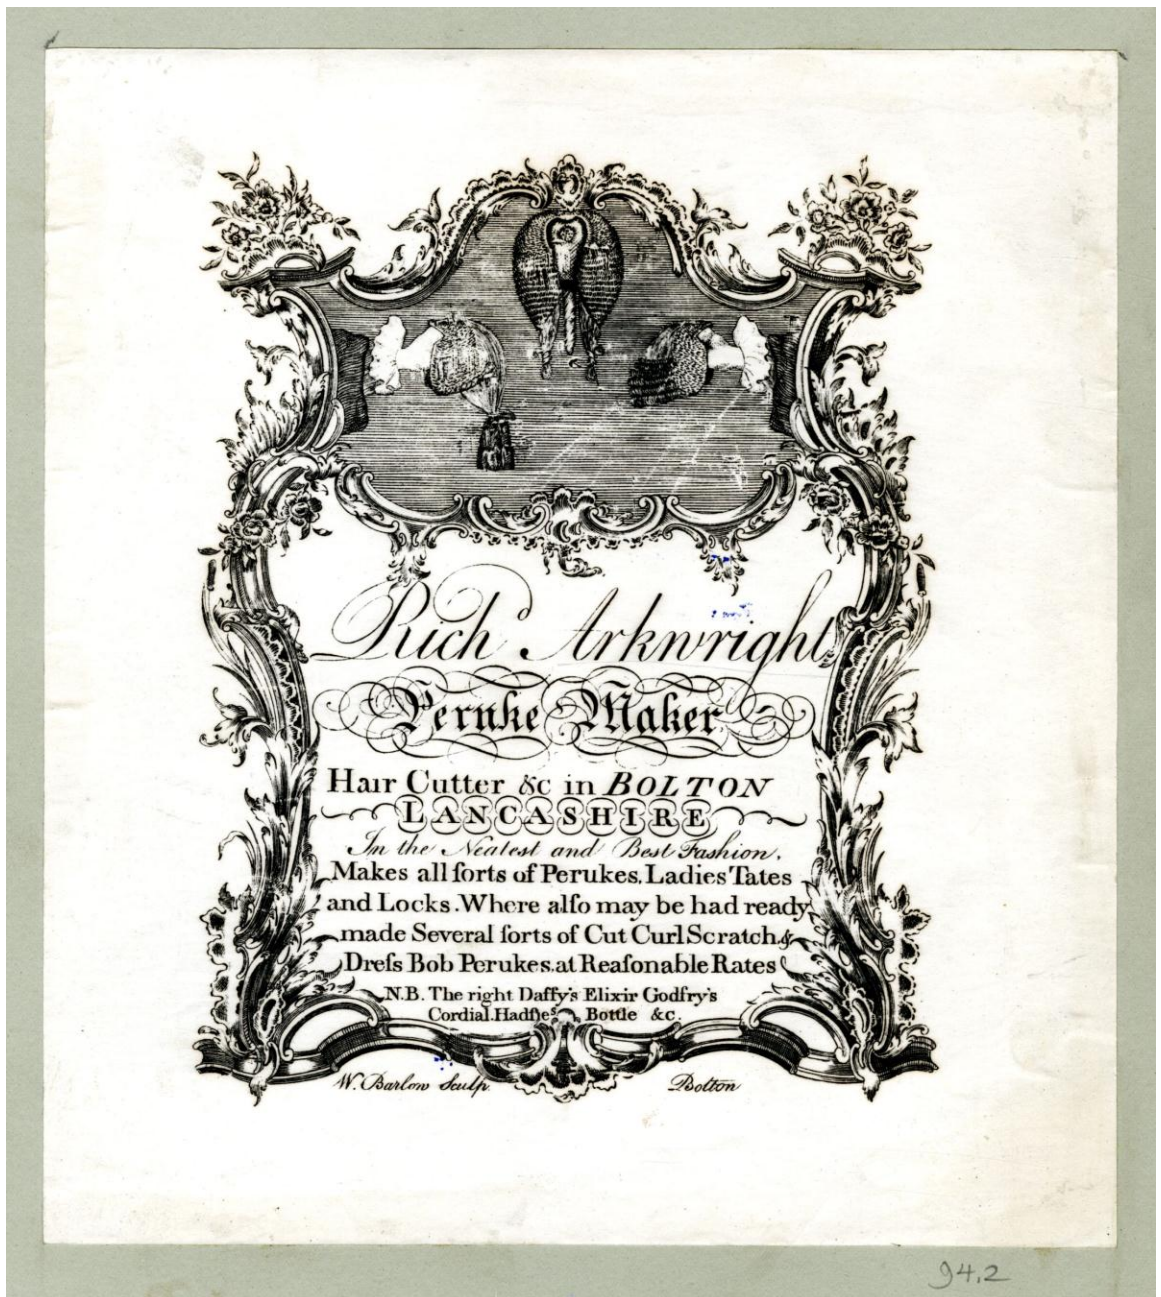 Rich Arkwright
Peruke Maker
Hair Cutter &c in BOLTON
LANCASHIRE
In the Neatest and Best Fashion,
Makes all ſorts of Perukes, Ladies Tates
and Locks. Where alſo may be had ready
made Several ſorts of Cut Curl Scratch &
Dreſs Bob Perukes. at Reaſonable Rates
N.B. The right Daffy's Elixir Godfry's
Cordial. Bottle &c.
W. Barlow Sculp Bolton
94.2